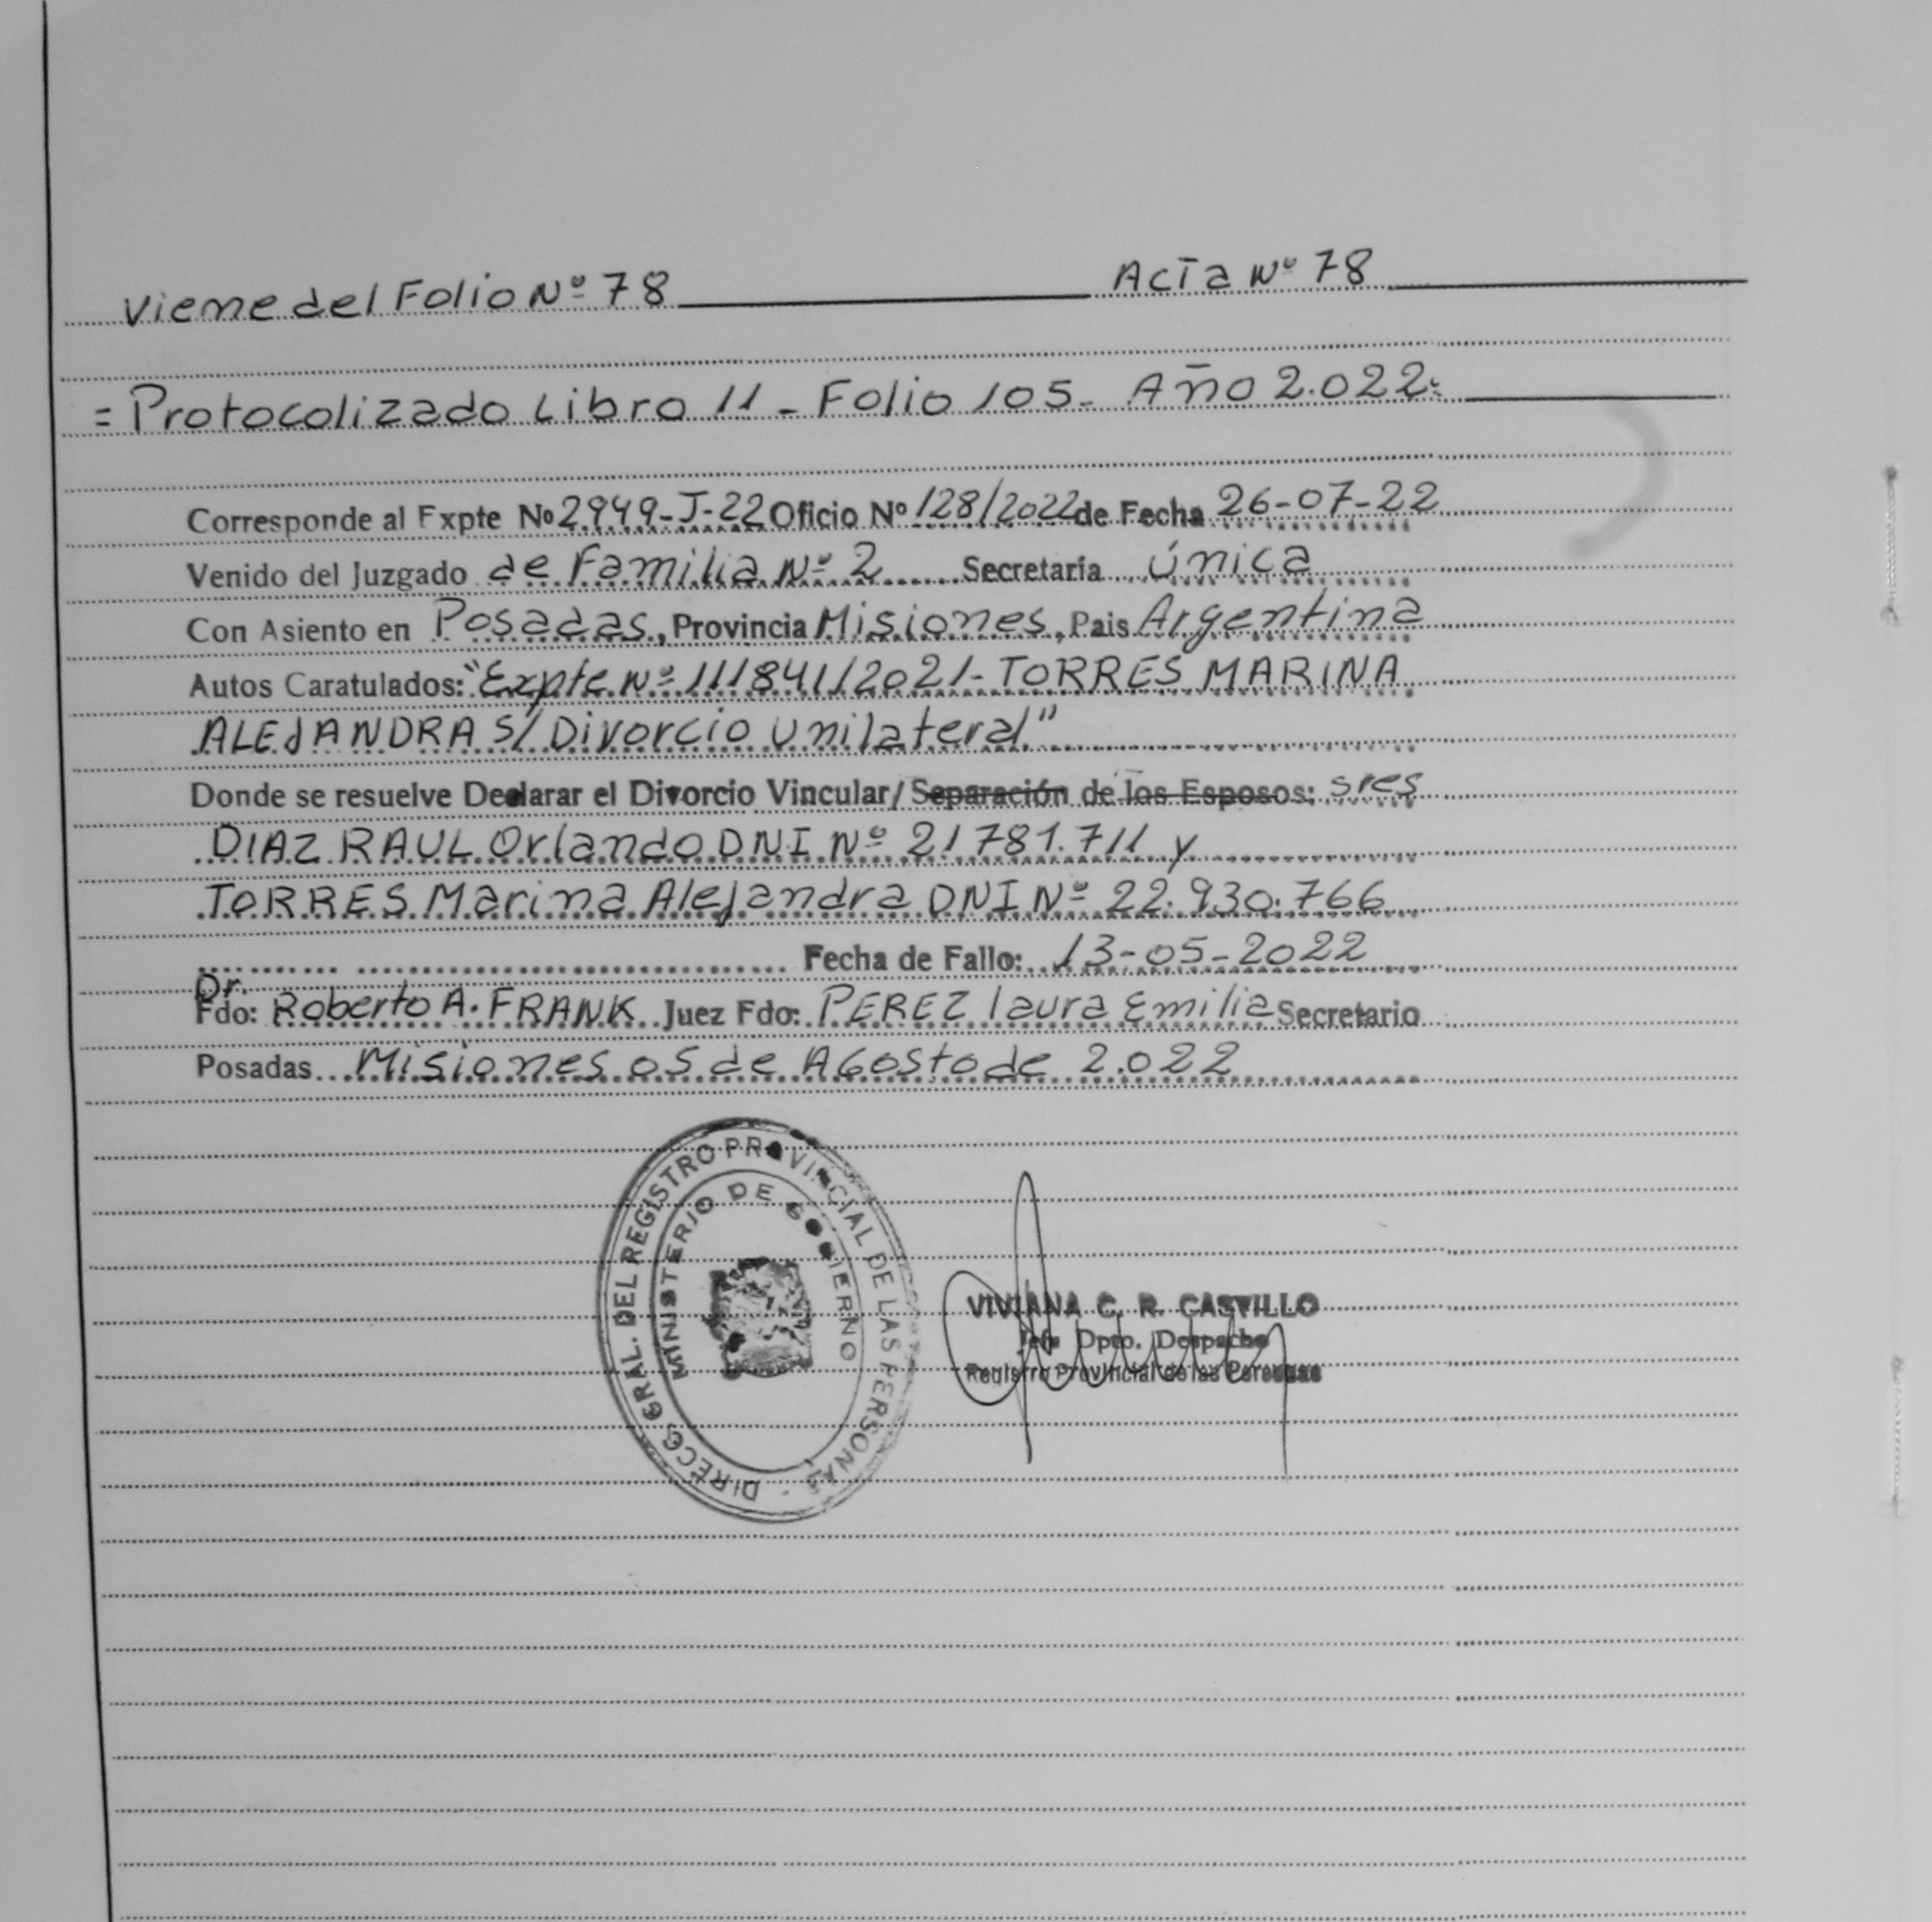 Viene del Folio Nº 78 Acta Nº 78
= Protocolizado Libro 11 - Folio 105 - Año 2.022.
Corresponde al Expte Nº 2949-J-22 Oficio Nº 128/2022 de Fecha 26-07-22
Venido del Juzgado de Familia Nº 2 Secretaría Única
Con Asiento en Posadas, Provincia Misiones, Pais Argentina
Autos Caratulados: "Expte Nº 111841/2021 - TORRES MARINA
ALEJANDRA S/ Divorcio Unilateral"
Donde se resuelve Declarar el Divorcio Vincular/ Separación de los Esposos: sres
DIAZ RAUL Orlando DNI Nº 21781.711 y
TORRES Marina Alejandra DNI Nº 22.930.766
Fecha de Fallo: 13-05-2022
Dr.
Fdo: Roberto A. FRANK Juez Fdo: PEREZ laura Emilia Secretario
Posadas Misiones 05 de AGosto de 2.022
DIRECC. GRAL. DEL REGISTRO PROVINCIAL DE LAS PERSONAS
MINISTERIO DE GOBIERNO
VIVIANA C. R. CASTILLO
Jefa Dpto. Despacho
Registro Provincial de las Personas